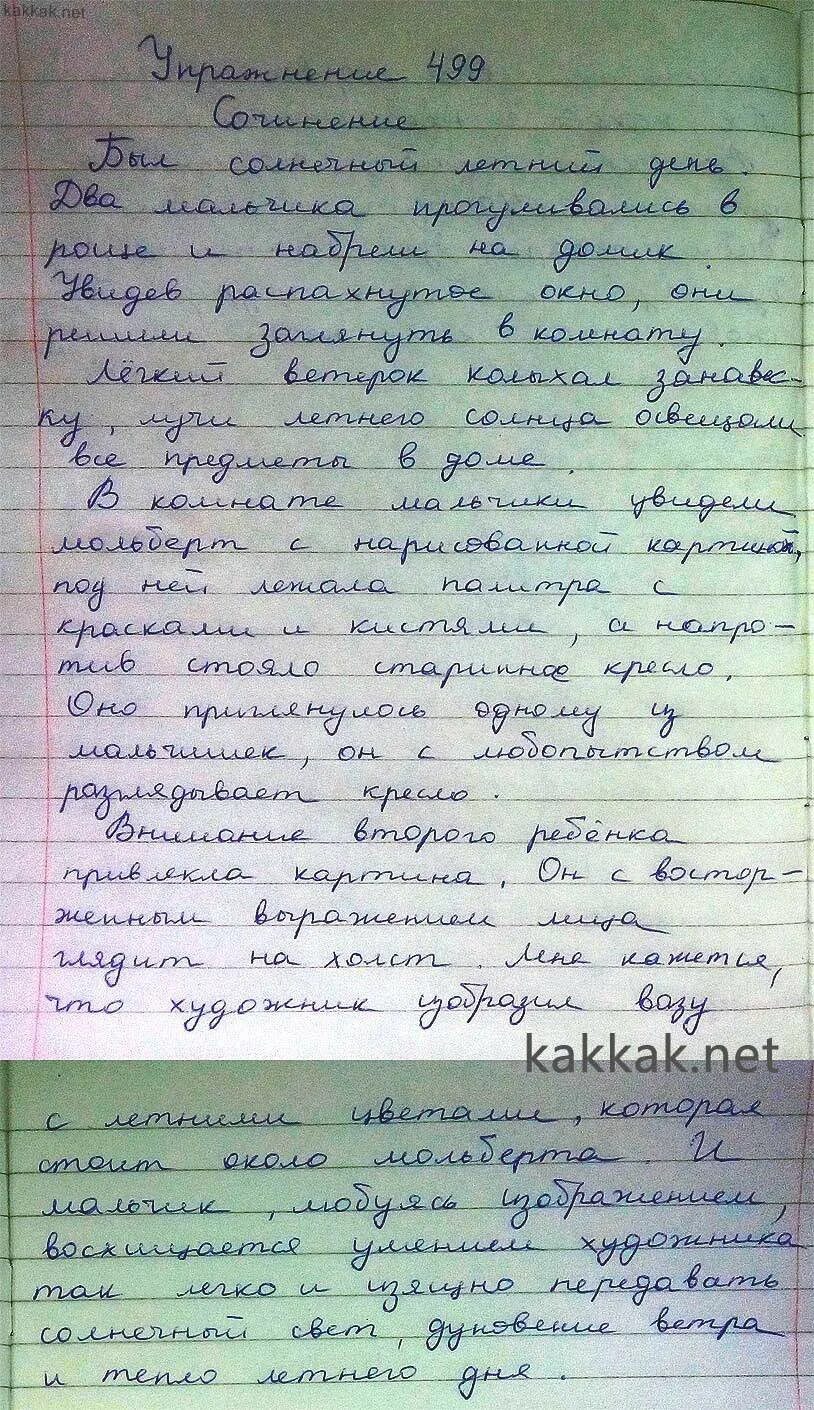 kakkak.net
Упражнение 499
Сочинение
Был солнечный летний день.
Два мальчика прогуливались в
роще и набрели на домик.
Увидев распахнутое окно, они
решили заглянуть в комнату.
Лёгкий ветерок колыхал занавес-
ку, лучи летнего солнца освещали
все предметы в доме.
В комнате мальчики увидели
мольберт с нарисованной картиной,
под ней лежала палитра с
красками и кистями, а напро-
тив стояло старинное кресло.
Оно приглянулось одному из
мальчишек, он с любопытством
разглядывает кресло.
Внимание второго ребёнка
привлекла картина. Он с востор-
женным выражением лица
глядит на холст. Мне кажется,
что художник изобразил вазу
kakkak.net
с летними цветами, которая
стоит около мольберта. И
мальчик, любуясь изображением,
восхищается умением художника
так легко и изящно передавать
солнечный свет, дуновение ветра
и тепло летнего дня.